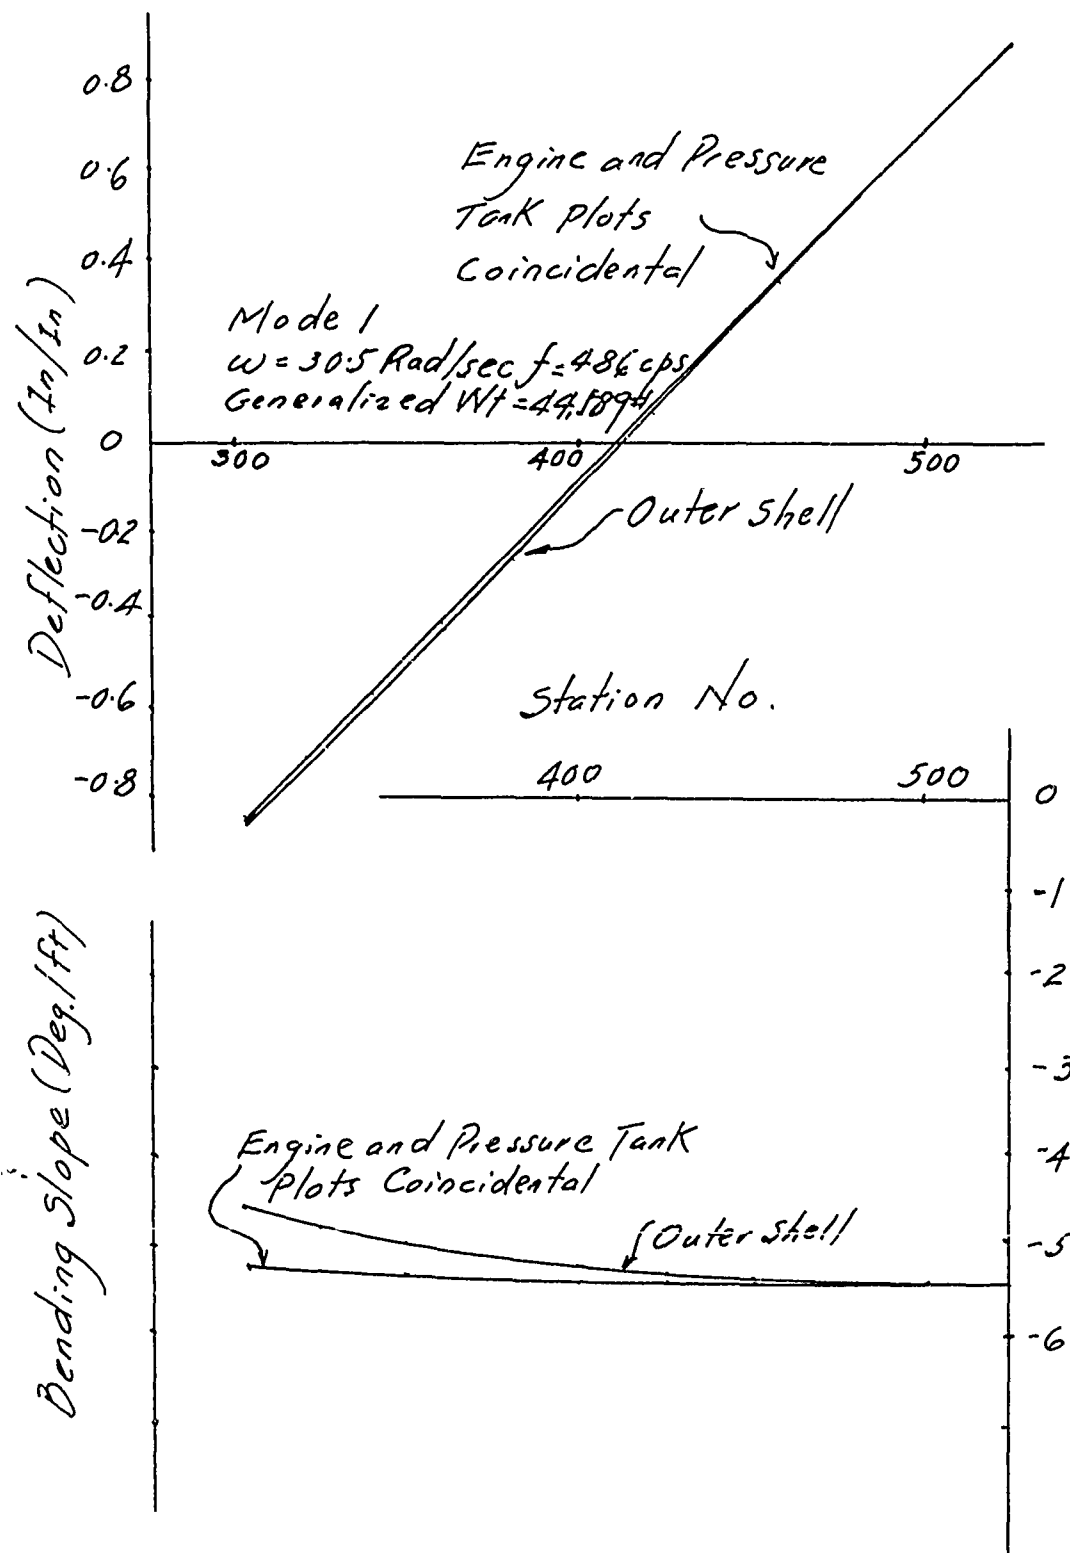 0.8
0.6
0.4
0.2
0
-0.2
-0.4
-0.6
-0.8
Deflection (In/In)
Engine and Pressure
Tank Plots
Coincidental
Mode 1
ω = 30.5 Rad/sec f = 4.86 cps
Generalized Wt = 44,589#
300
400
500
Outer Shell
Station No.
400
500
0
-1
-2
-3
-4
-5
-6
Bending Slope (Deg./ft)
Engine and Pressure Tank
Plots Coincidental
Outer Shell